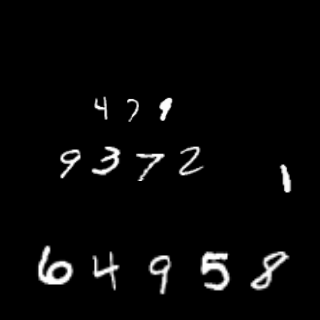 479
9372
1
64958